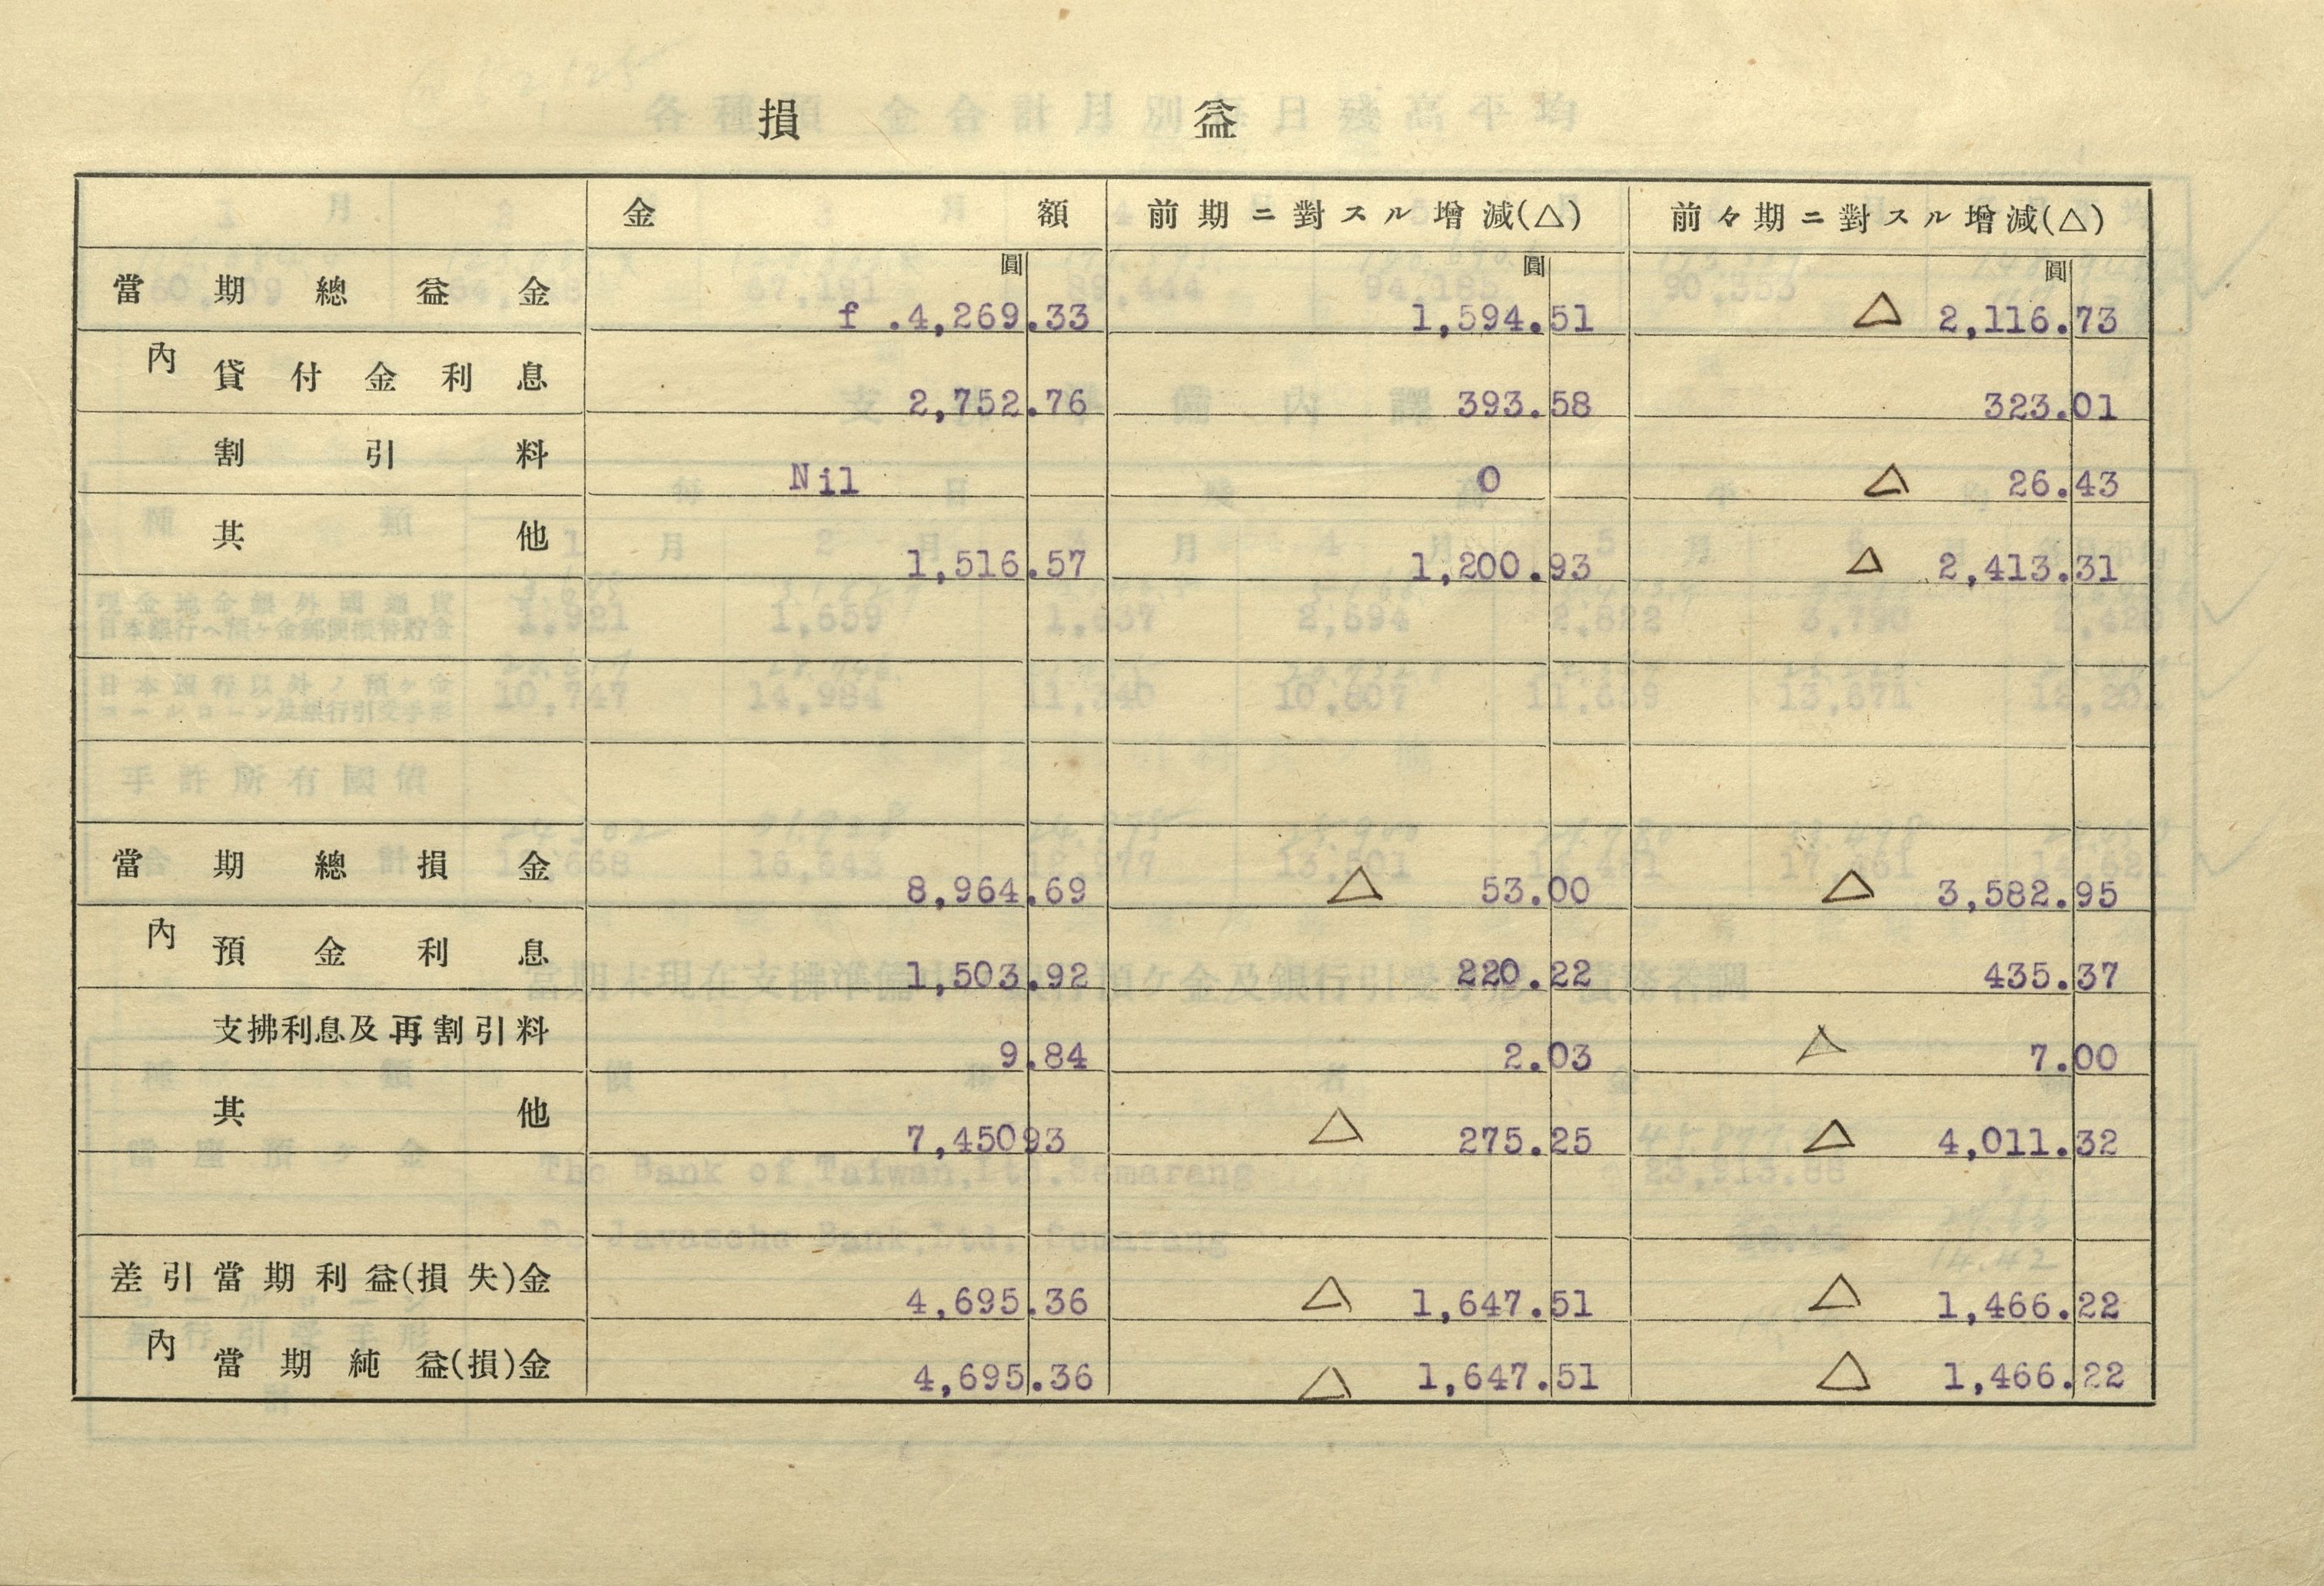 損益
金額 前期ニ對スル增減(△) 前々期ニ對スル增減(△)
圓 圓 圓
當期總益金 f .4,269.33 1,594.51 △ 2,116.73
內 貸付金利息 2,752.76 393.58 323.01
割引料 Nil 0 △ 26.43
其他 1,516.57 1,200.93 △ 2,413.31
當期總損金 8,964.69 △ 53.00 △ 3,582.95
內 預金利息 1,503.92 220.22 435.37
支拂利息及再割引料 9.84 2.03 △ 7.00
其他 7,45093 △ 275.25 △ 4,011.32
差引當期利益(損失)金 4,695.36 △ 1,647.51 △ 1,466.22
內 當期純益(損)金 4,695.36 △ 1,647.51 △ 1,466.22